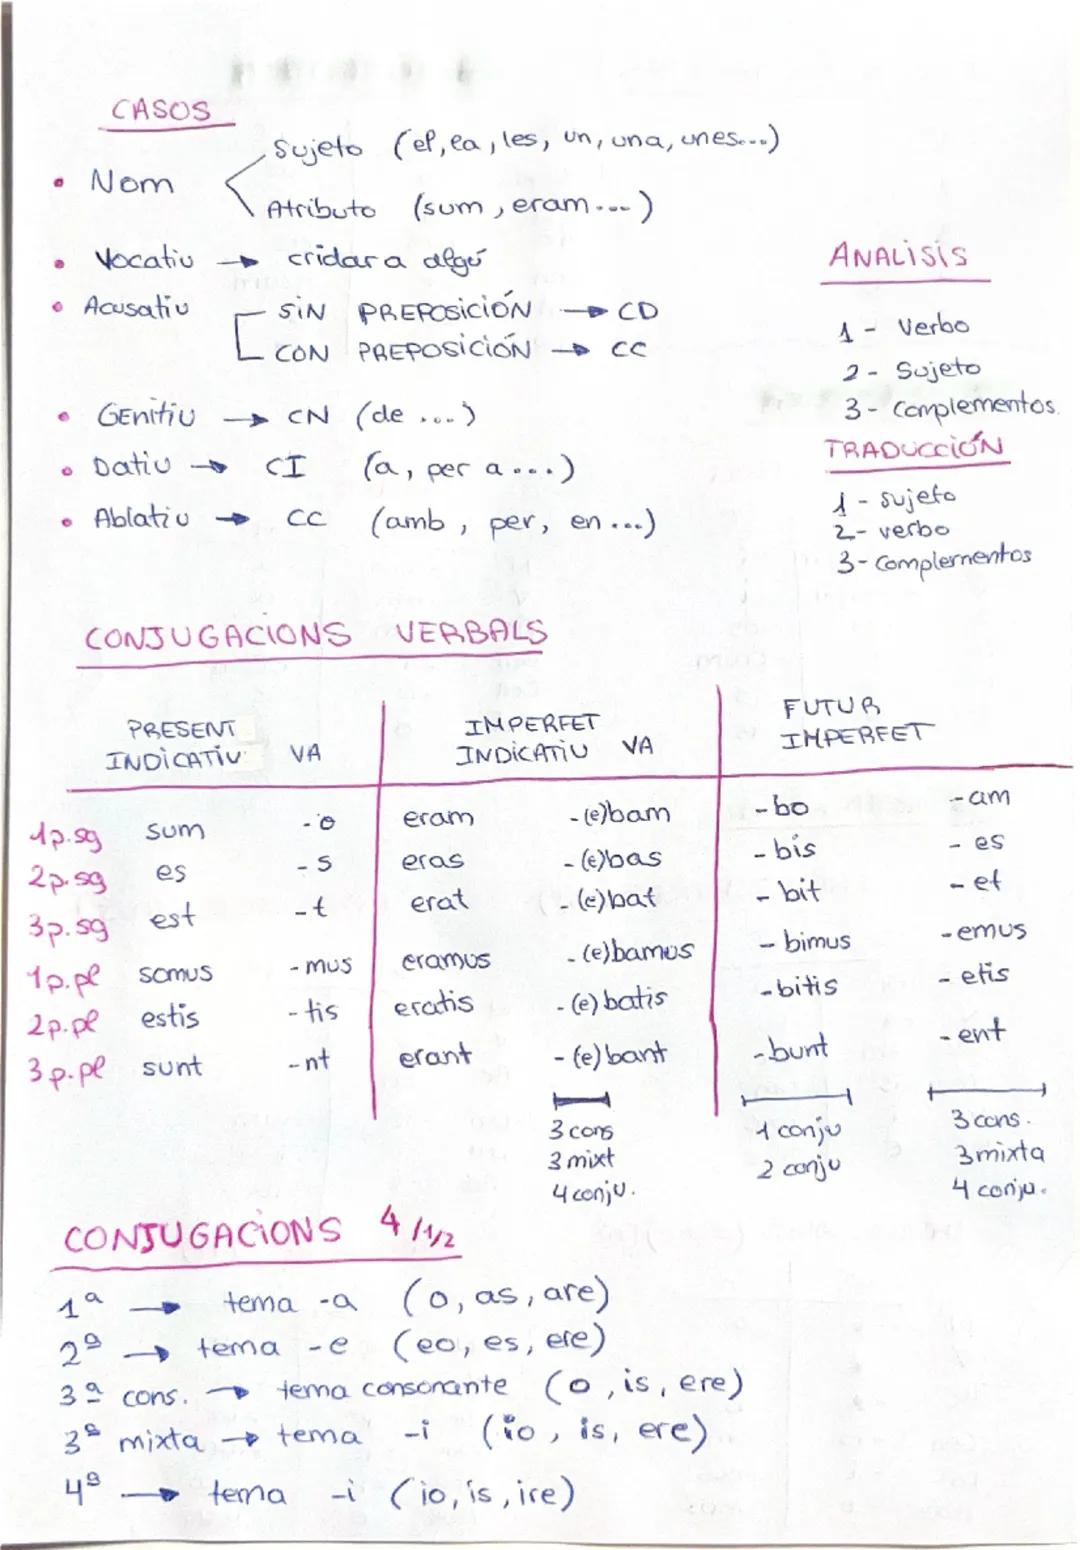 CASOS
• Nom
Sujeto (el, ea, les, un, una, unes....)
Atributo (sum, eram....)
• Vocatiu → cridar a algú
• Acusatiu
SIN PREPOSICIÓN → CD
CON PREPOSICIÓN → CC
• GEnitiu → CN (de ....)
• Datiu → CI (a, per a ....)
• Ablatiu → CC (amb, per, en ....)
ANALISIS
1 - Verbo
2 - Sujeto
3 - Complementos.
TRADUCCIÓN
1 - sujeto
2 - verbo
3 - Complementos
CONJUGACIONS VERBALS
PRESENT INDICATIU VA
IMPERFET INDICATIU VA
FUTUR IMPERFET
1p.sg sum -o eram -(e)bam -bo -am
2p.sg es -s eras -(e)bas -bis -es
3p.sg est -t erat -(e)bat -bit -et
1p.pl somus -mus eramus -(e)bamus -bimus -emus
2p.pl estis -tis eratis -(e)batis -bitis -etis
3p.pl sunt -nt erant -(e)bant -bunt -ent
3 cons 1 conju 3 cons.
3 mixt 2 conju 3 mixta
4 conju. 4 conju.
CONJUGACIONS 4/1/2
1ª → tema -a (o, as, are)
2ª → tema -e (eo, es, ere)
3ª cons. → tema consonante (o, is, ere)
3ª mixta → tema -i (io, is, ere)
4ª → tema -i (io, is, ire)